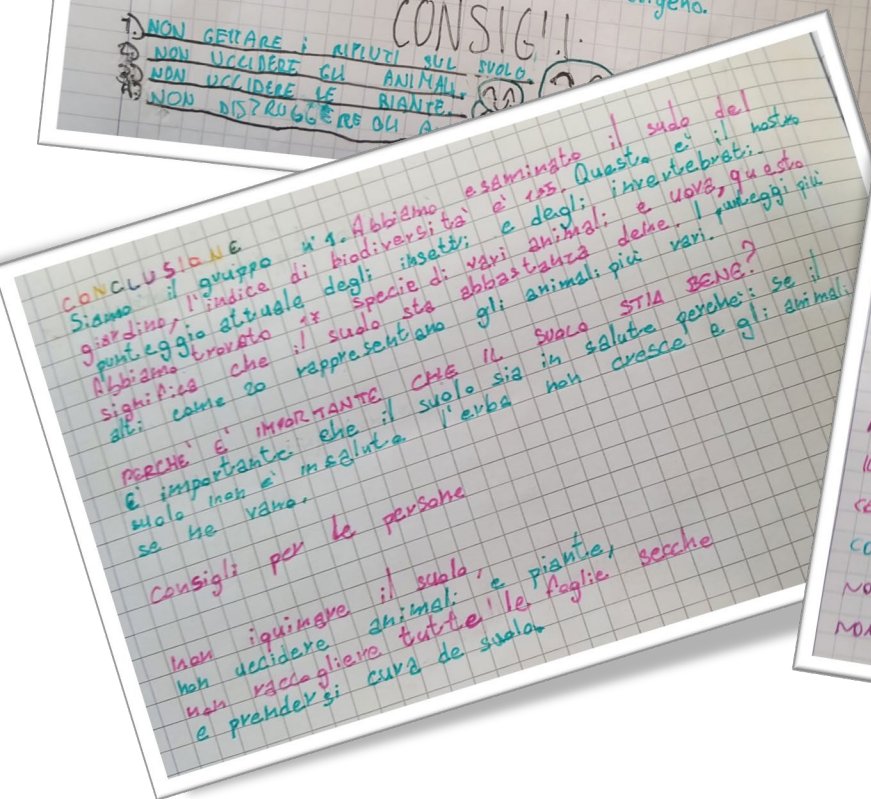 ossigeno.
CONSIGLI
1) NON GETTARE i RIFIUTI SUL SUOLO.
2) NON UCCIDERE GLI ANIMALI.
3) NON UCCIDERE LE PIANTE.
4) NON DISTRUGGERE GLI A
CONCLUSIONE
Siamo il gruppo n°1. Abbiamo esaminato il suolo del
giardino, l'indice di biodiversità è 155. Questo è il nostro
punteggio attuale degli insetti e degli invertebrati.
Abbiamo trovato 17 specie di vari animali e uova, questo
significa che il suolo sta abbastanza bene. I punteggi più
alti come 20 rappresentano gli animali più vari.
PERCHE' E' IMPORTANTE CHE IL SUOLO STIA BENE?
E' importante che il suolo sia in salute perchè: se il
suolo non è in salute l'erba non cresce e gli animali
se ne vano.
Consigli per le persone
non iquinare il suolo,
non uccidere animali e piante,
non raccogliere tutte le foglie secche
e prendersi cura de suolo.